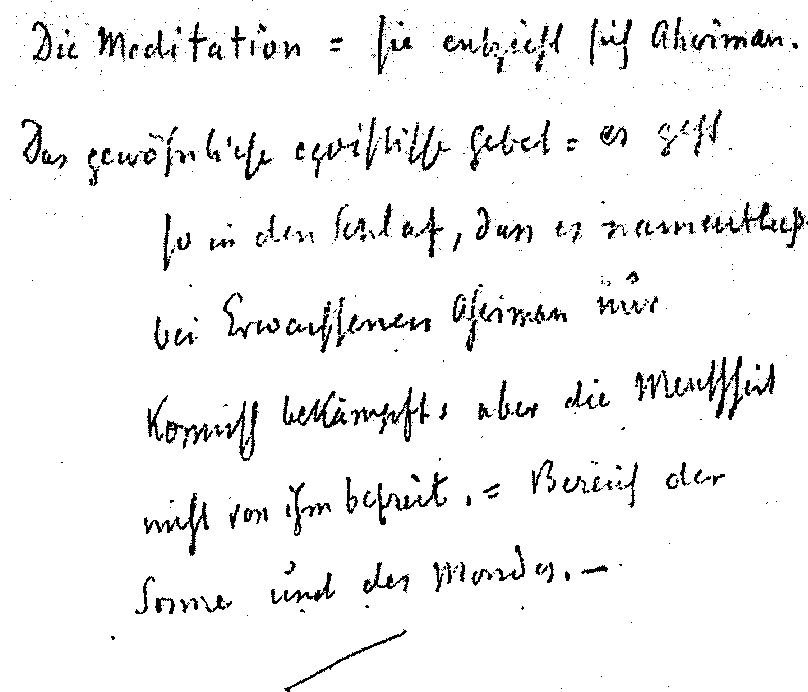 Die Meditation = sie entzieht sich Ahriman.
Das gewöhnliche egoistische Gebet = es geht
so in den Schlaf, dass es namentlich
bei Erwachsenen Ahriman nur
komisch bekämpft, aber die Menschheit
nicht von ihm befreit. = Bereich der
Sonne und des Mondes. —